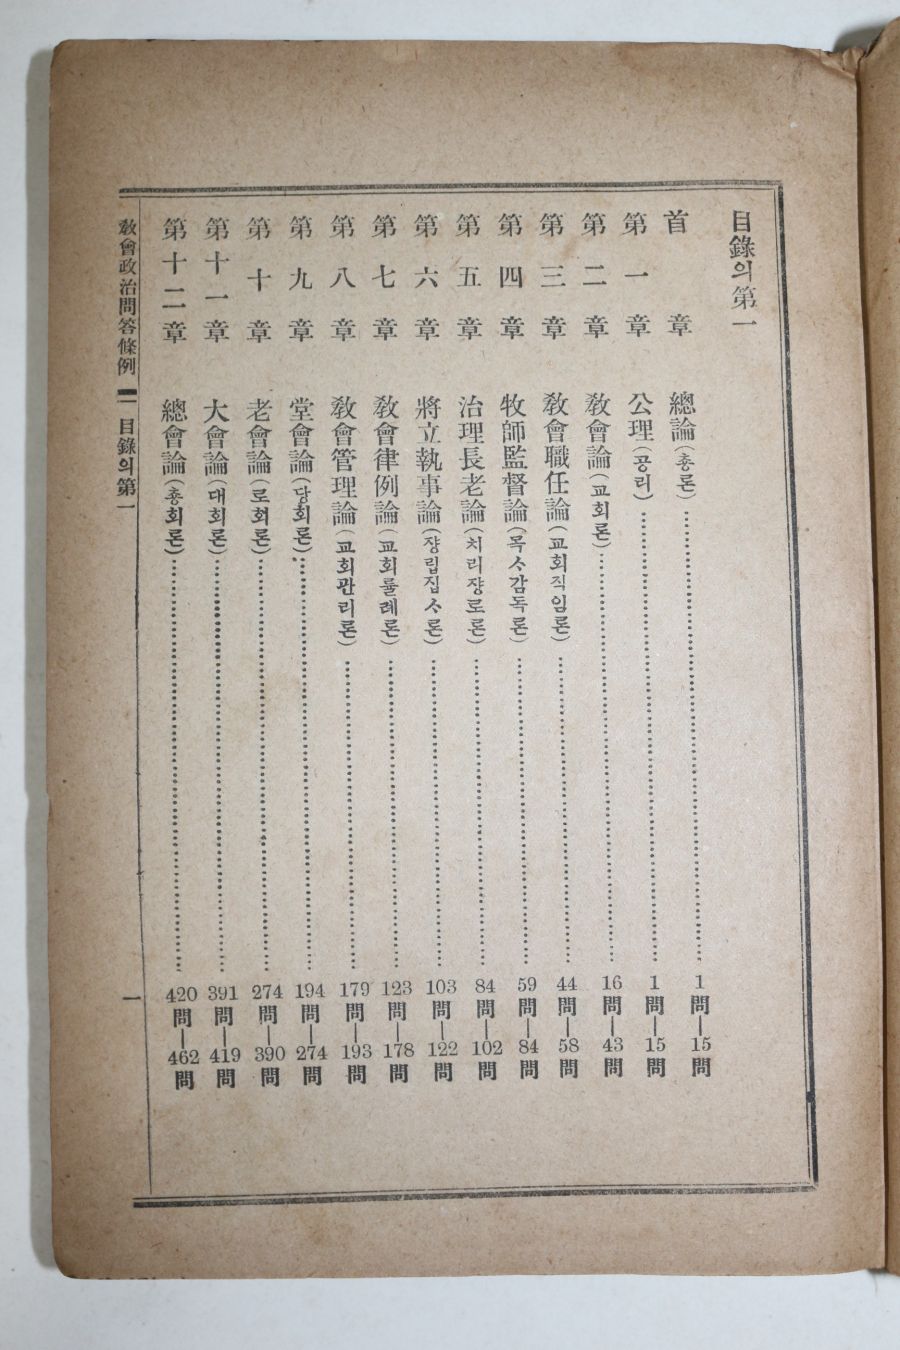 目錄의第一
首章 總論(총론) 1問—15問
第一章 公理(공리) 1問—15問
第二章 敎會論(교회론) 16問—43問
第三章 敎會職任論(교회직임론) 44問—58問
第四章 牧師監督論(목ᄉᆞ감독론) 59問—84問
第五章 治理長老論(치리쟝로론) 84問—102問
第六章 將立執事論(쟝립집ᄉᆞ론) 103問—122問
第七章 敎會律例論(교회률례론) 123問—178問
第八章 敎會管理論(교회관리론) 179問—193問
第九章 堂會論(당회론) 194問—274問
第十章 老會論(로회론) 274問—390問
第十一章 大會論(대회론) 391問—419問
第十二章 總會論(총회론) 420問—462問
敎會政治問答條例 目錄의第一 一